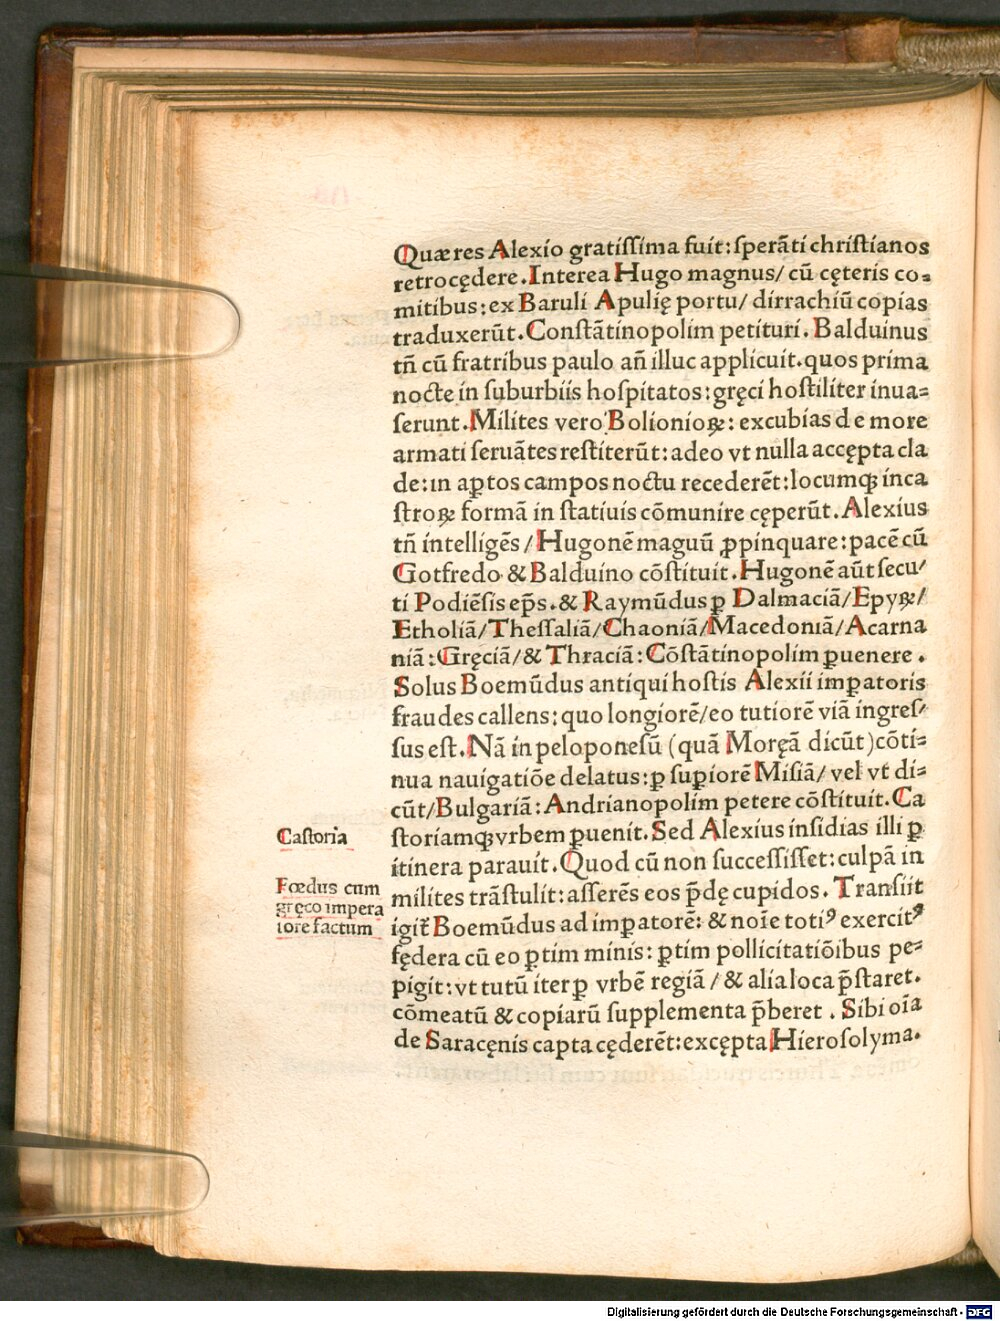 Quæ res Alexio gratiſſima fuit: ſperãti chriſtianos
retrocędere. Interea Hugo magnus/ cũ cęteris co=
mitibus: ex Baruli Apulię portu/ dirrachiũ copias
traduxerũt. Conſtãtinopolim petituri. Balduinus
tñ cũ fratribus paulo añ illuc applicuit. quos prima
nocte in ſuburbiis hoſpitatos: gręci hoſtiliter inua=
ſerunt. Milites vero Bolionioꝝ: excubias de more
armati ſeruãtes reſtiterũt: adeo vt nulla accępta cla
de: in aꝑtos campos noctu recederẽt: locumqꝫ in ca
ſtroꝝ formã in ſtatiuis cõmunire cęperũt. Alexius
tñ intelligẽs/ Hugonẽ maguũ ꝓpinquare: pacẽ cũ
Gotfredo & Balduino cõſtituit. Hugonẽ aũt ſecu/
ti Podiẽſis ep̃s. & Raymũdus ꝑ Dalmaciã/ Epyꝝ/
Etholiã/ Theſſaliã/ Chaoniã/ Macedoniã/ Acarna
niã: Gręciã/ & Thraciã: Cõſtãtinopolim ꝑuenere.
Solus Boemũdus antiqui hoſtis Alexii imꝑatoris
fraudes callens: quo longiorẽ/ eo tutiorẽ viã ingreſ/
ſus eſt. Nã in peloponeſũ (quã Moręã dicũt) cõti=
nua nauigatiõe delatus: ꝑ ſuꝑiorẽ Miſiã/ vel vt di=
cũt/ Bulgariã: Andrianopolim petere cõſtituit. Ca
ſtoriamqꝫ vrbem ꝑuenit. Sed Alexius inſidias illi ꝑ
itinera parauit. Quod cũ non ſucceſſiſſet: culpã in
milites trãſtulit: aſſerẽs eos p̃dę cupidos. Tranſiit
igit̃ Boemũdus ad imꝑatorẽ: & noĩe totiꝰ exercitꝰ
fędera cũ eo ꝑtim minis: ꝑtim pollicitatiõibus pe=
pigit: vt tutũ iter ꝑ vrbẽ regiã/ & alia loca p̃ſtaret.
cõmeatũ & copiarũ ſupplementa p̃beret. Sibi oĩa
de Saracęnis capta cęderẽt: excępta Hieroſolyma.
Caſtoria
Fœdus cum
gręco impera
tore factum
Digitalisierung gefördert durch die Deutsche Forschungsgemeinschaft - DFG